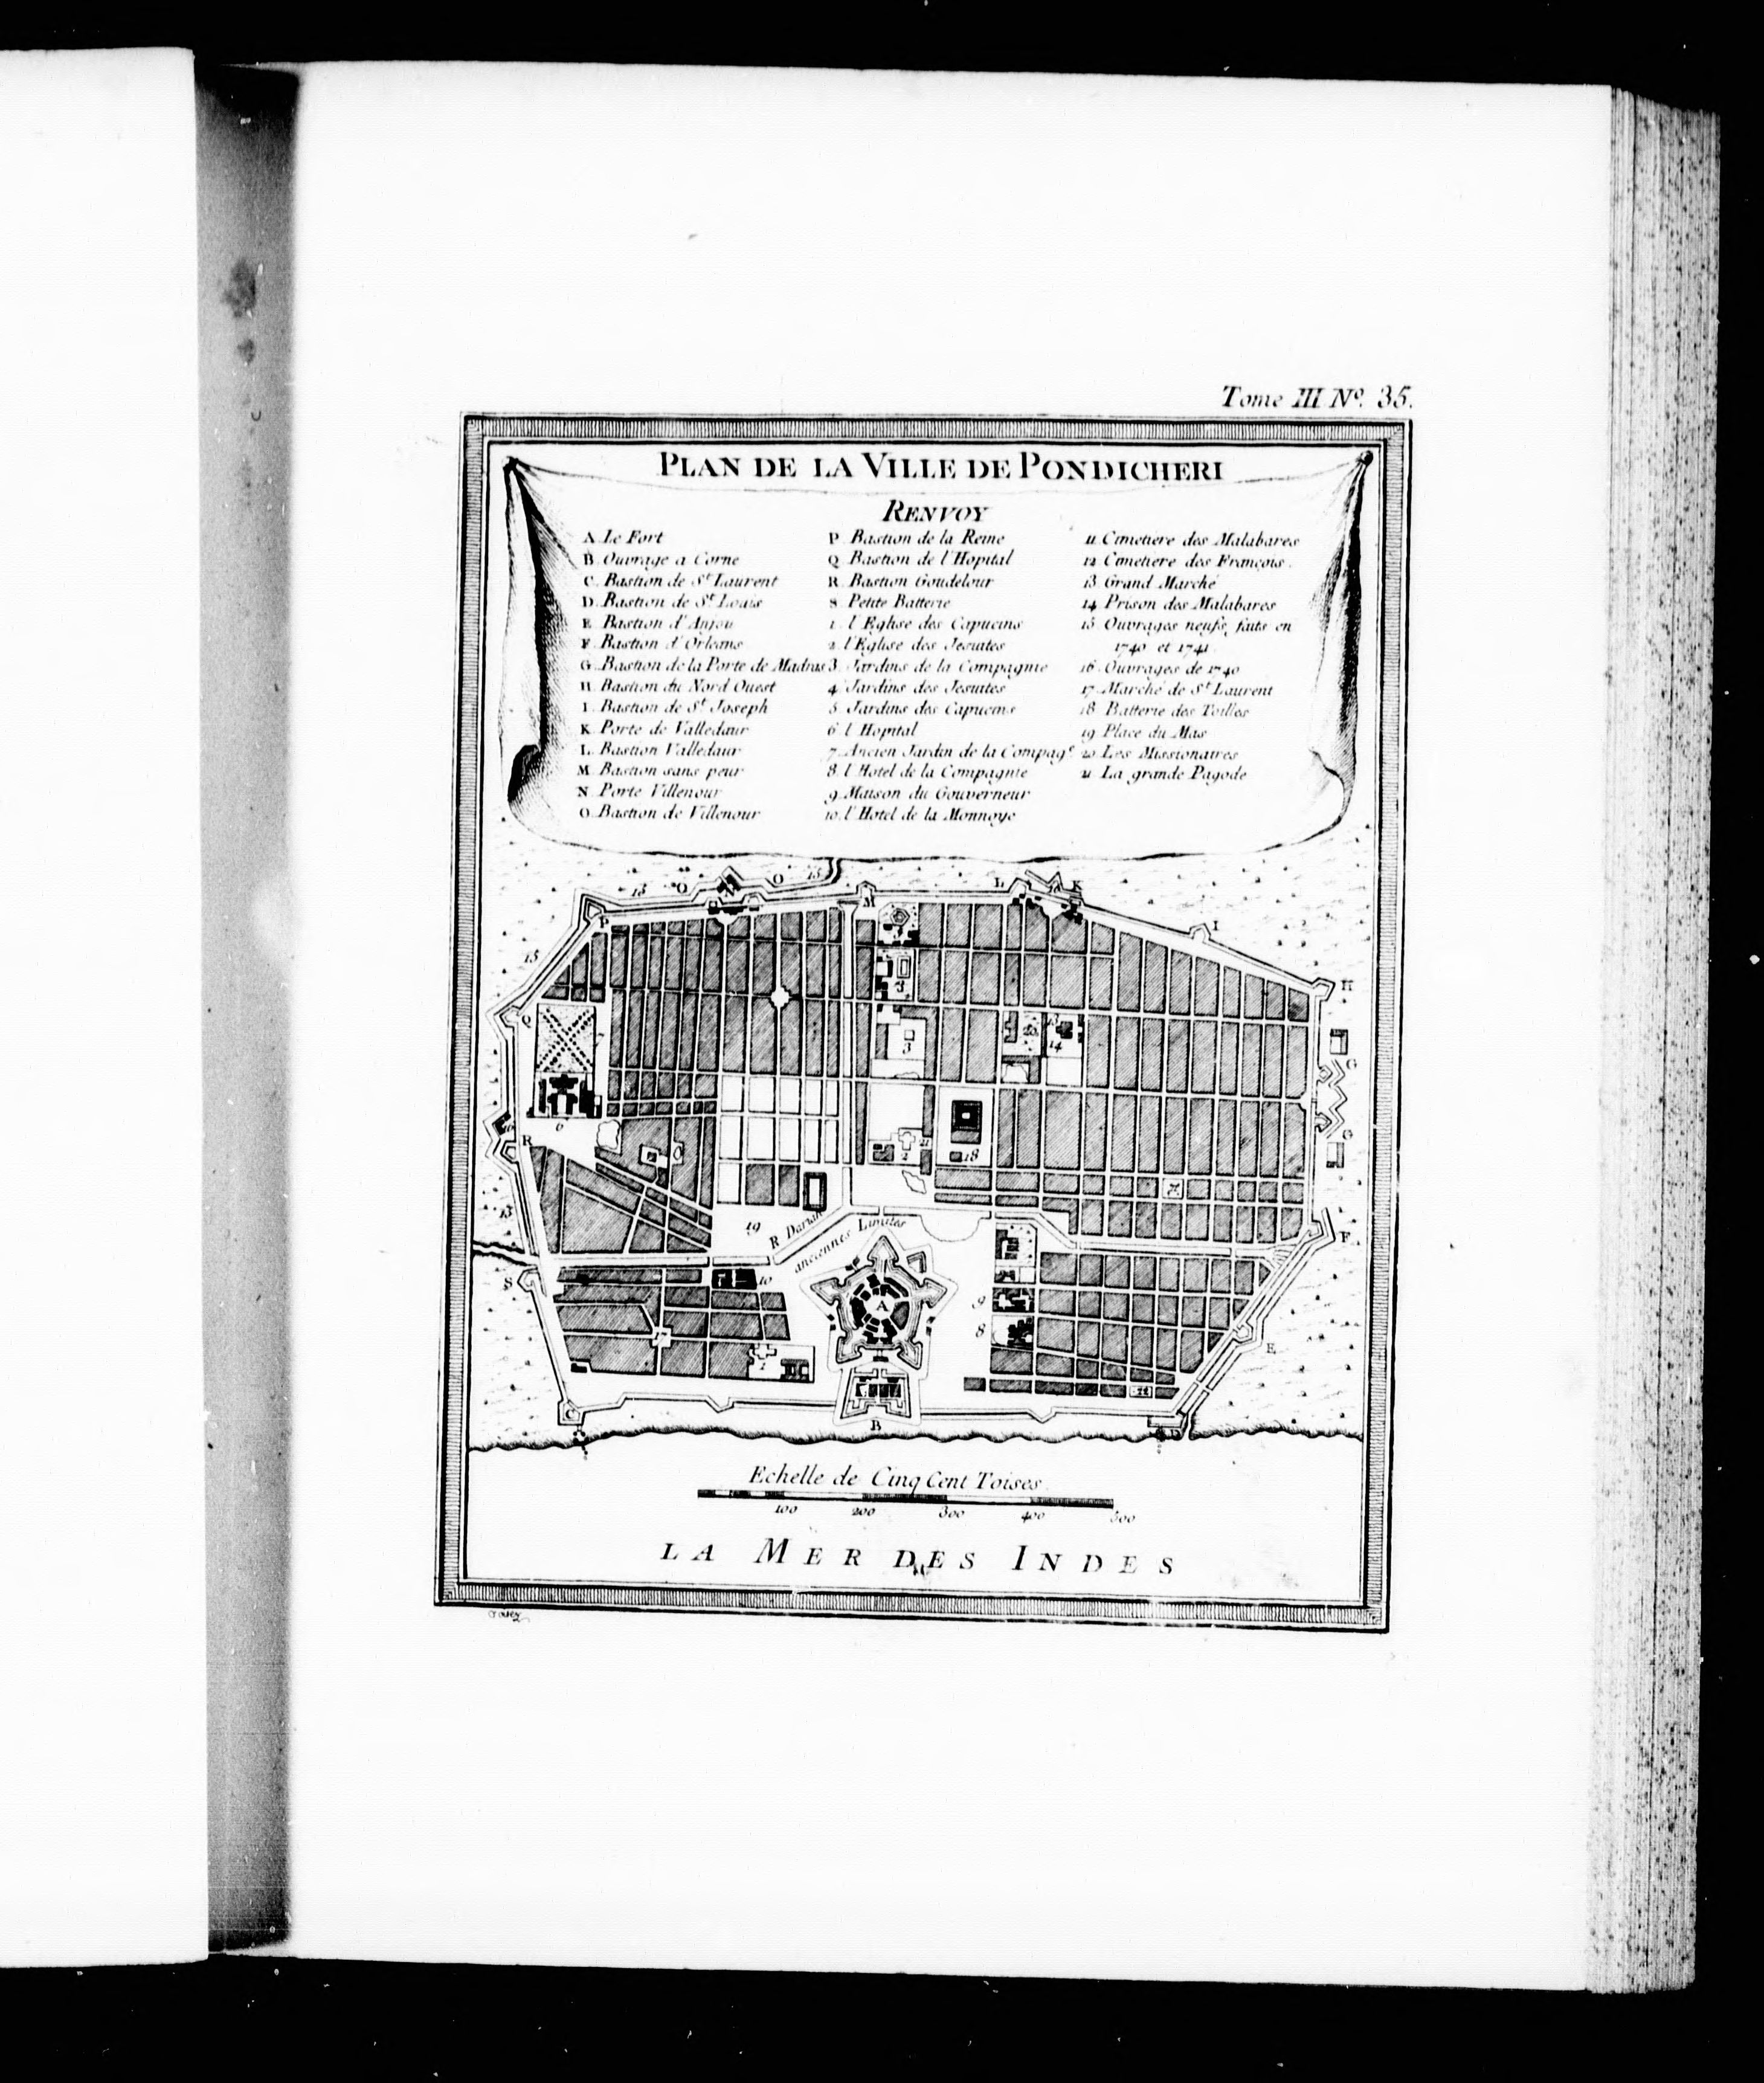 Tome III Nº. 35.
PLAN DE LA VILLE DE PONDICHERI
RENVOY
A. Le Fort
B. Ouvrage a Corne
C. Bastion de St Laurent
D. Bastion de St Louis
E. Bastion d'Anjou
F. Bastion d'Orleans
G. Bastion de la Porte de Madras
H. Bastion du Nord Ouest
I. Bastion de St Joseph
K. Porte de Valledaur
L. Bastion Valledaur
M. Bastion sans peur
N. Porte Villenour
O. Bastion de Villenour
P. Bastion de la Reine
Q. Bastion de l'Hopital
R. Bastion Goudelour
S. Petite Batterie
1. l'Eglise des Capucins
2. l'Eglise des Jesuites
3. Jardins de la Compagnie
4. Jardins des Jesuites
5. Jardins des Capucins
6. l'Hopital
7. Ancien Jardin de la Compage
8. l'Hotel de la Compagnie
9. Maison du Gouverneur
10. l'Hotel de la Monnoye
11. Cimetiere des Malabares
12. Cimetiere des François.
13. Grand Marché
14. Prison des Malabares
15. Ouvrages neufs, faits en
1740 et 1741.
16. Ouvrages de 1740
17. Marché de St Laurent
18. Batterie des Toilles
19. Place du Mas
20. Les Missionaires
21. La grande Pagode
15 O N O 15
M
L K
P
I
15
H
3
Q
7
3
20 13
14
G
6
R
2 21
18
G
15
19
R. Darian
anciennes Limites
F.
S
10
A
9
8
17
1
E
12
C
B
D
Echelle de Cinq Cent Toises.
100 200 300 400 500
LA MER DES INDES